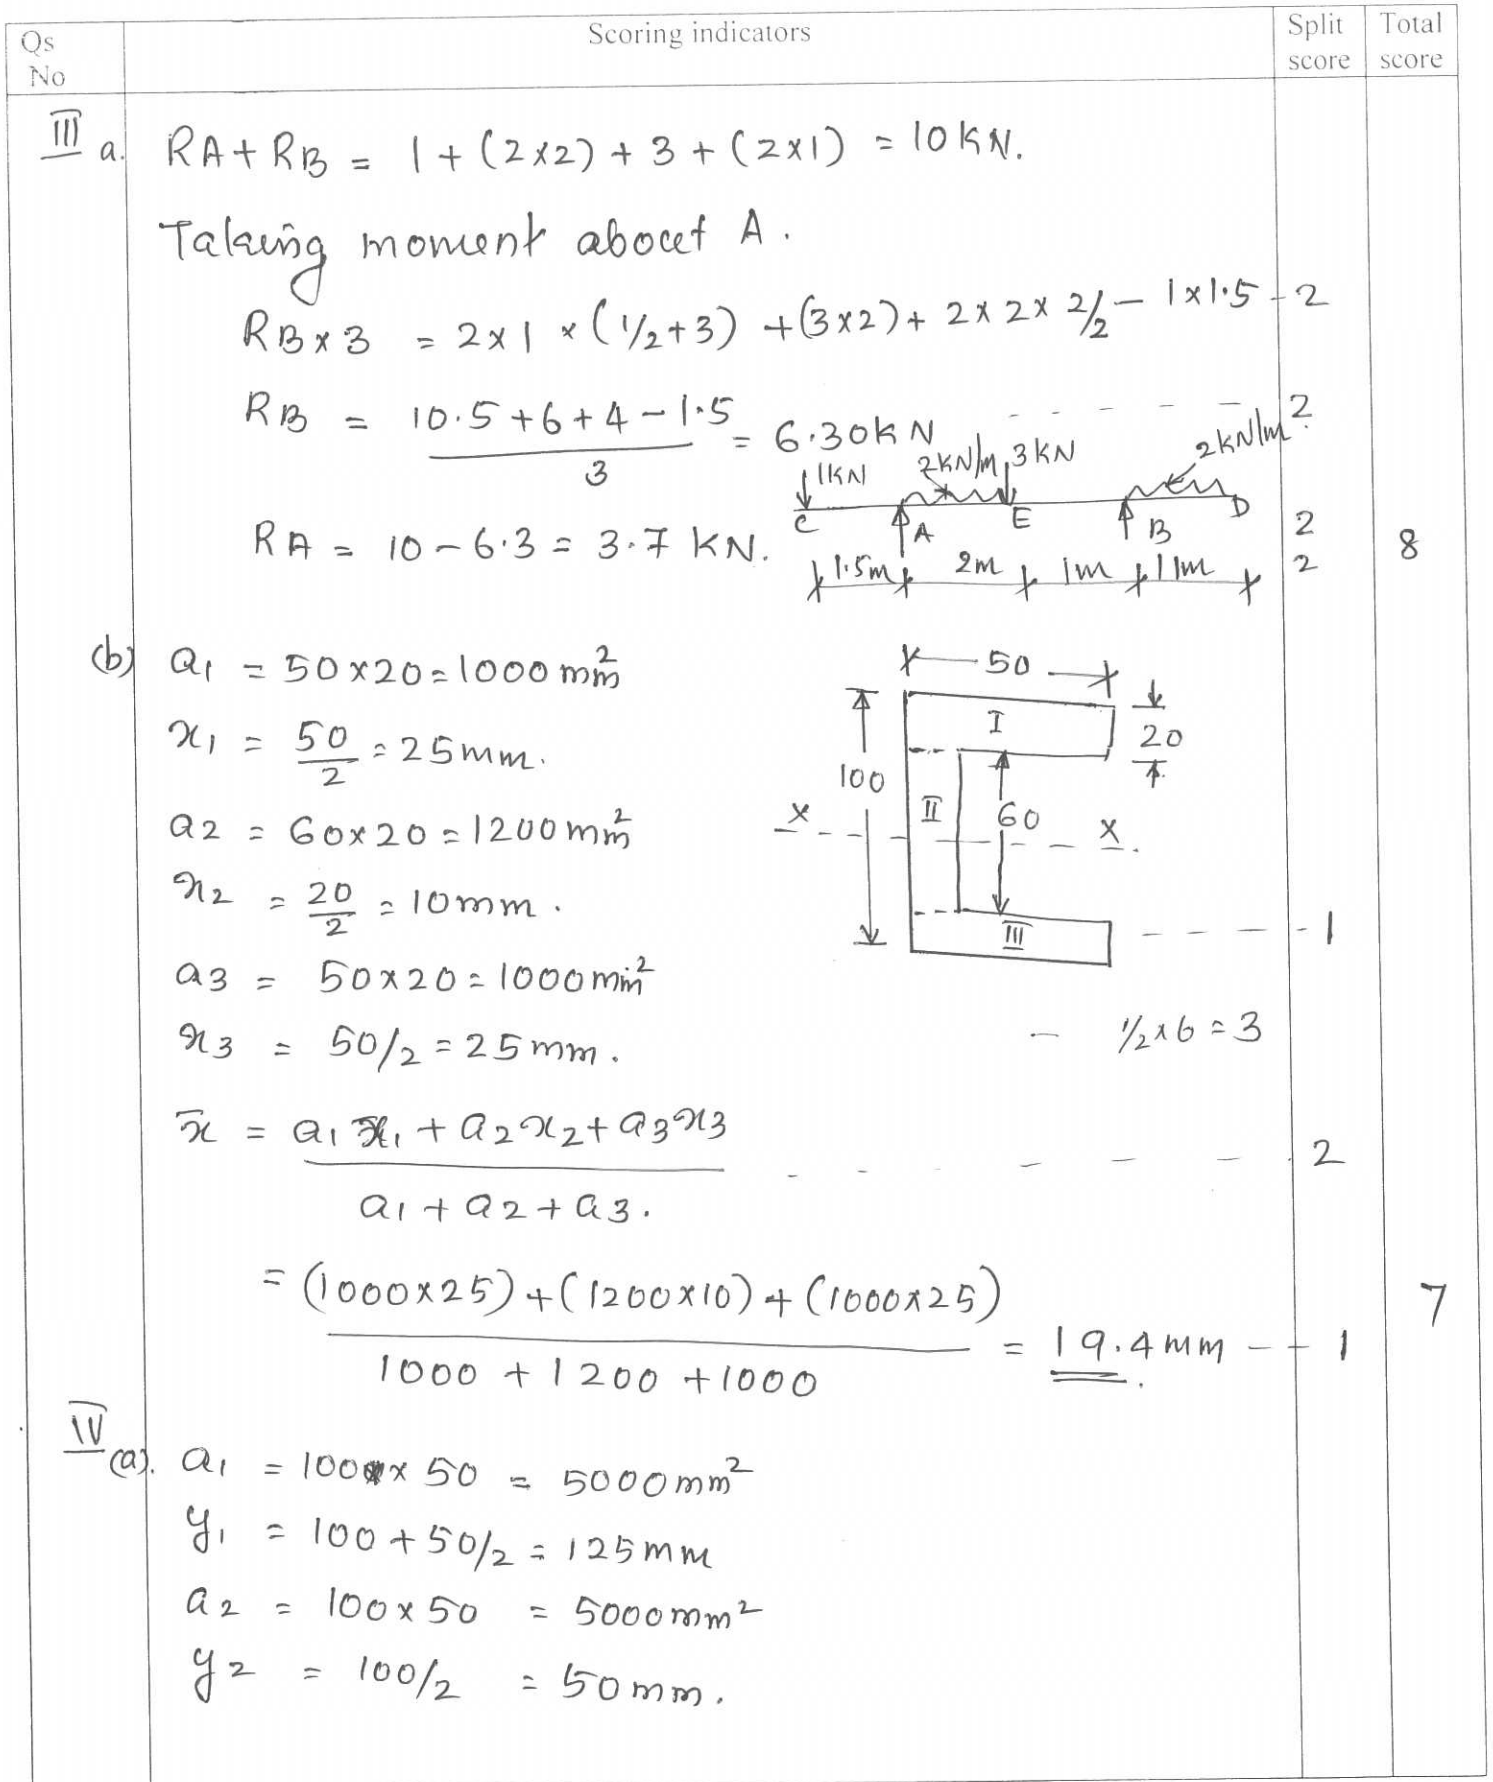 Qs No
Scoring indicators
Split score
Total score
III a. RA + RB = 1 + (2×2) + 3 + (2×1) = 10 KN.
Taking moment about A.
RB × 3 = 2×1 × (1/2+3) + (3×2) + 2×2×2/2 − 1×1.5 - 2
RB = (10.5+6+4−1.5)/3 = 6.30KN - - - - - 2
1KN 2KN/m 3KN 2KN/m
C A E B D
1.5m 2m 1m 1m
RA = 10 − 6.3 = 3.7 KN. 2
2 8
(b) a1 = 50×20 = 1000 mm²
x1 = 50/2 = 25mm.
a2 = 60×20 = 1200 mm²
x2 = 20/2 = 10mm.
a3 = 50×20 = 1000 mm²
x3 = 50/2 = 25mm.
50
I
20
100
II
60
X X.
III - - - - 1
— 1/2×6 = 3
x̄ = (a1 x1 + a2x2 + a3x3)/(a1 + a2 + a3.) - - - - - - - 2
= ((1000×25) + (1200×10) + (1000×25))/(1000 + 1200 + 1000) = 19.4mm - - 1
7
IV (a). a1 = 100 × 50 = 5000mm²
y1 = 100 + 50/2 = 125mm
a2 = 100×50 = 5000mm²
y2 = 100/2 = 50mm.